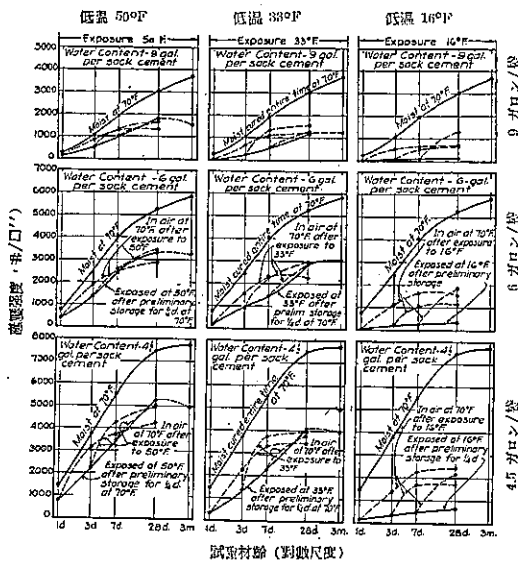 低温 50°F
低温 33°F
低温 16°F
Exposure 50°F.
Exposure 33°F.
Exposure 16°F.
Water Content-9 gal.
per sack cement
Moist at 70°F.
Water Content-9 gal.
per sack cement
Moist cured entire time at 70°F.
Water Content-9 gal.
per sack cement
Moist at 70°F.
9 ガロン/袋
Water Content-6 gal.
per sack cement
Moist at 70°F.
In air at
70°F. after
exposure to
50°F.
Exposed at 50°F.
after preliminary
storage for ¼d. at
70°F.
Water Content-6 gal.
per sack cement
Moist cured entire time at 70°F.
In air at
70°F. after
exposure to
33°F.
Exposed at
33°F. after
prelim storage
for ¼d. at 70°F.
Water Content-6 gal.
per sack cement
Moist at 70°F.
In air at 70°F.
after exposure
to 16°F.
Exposed at 16°F.
after preliminary
storage
6 ガロン/袋
Water Content-4½
gal. per sack cement
Moist at 70°F.
In air at
70°F. after
exposure
to 50°F.
Exposed at 50°F.
after preliminary
storage for ¼d.
at 70°F.
Water Content-4½
gal. per sack
cement
Moist cured entire time at 70°F.
In air at
70°F. after
exposure to
33°F.
Exposed at 33°F. after
preliminary storage
for ¼d at 70°F.
Water Content-4½
gal. per sack
cement
Moist at 70°F.
In air at 70°F.
after exposure
to 16°F.
Exposed at 16°F.
after preliminary
storage for ¼d.
at 70°F.
4.5 ガロン/袋
應壓强度 (#/口")
5000
4000
3000
2000
1000
0
6000
5000
4000
3000
2000
1000
0
8000
7000
6000
5000
4000
3000
2000
1000
0
1d. 3d. 7d. 28d. 3m.
1d. 3d. 7d. 28d. 3m.
1d. 3d. 7d. 28d. 3m.
試驗材齡 (對數尺度)